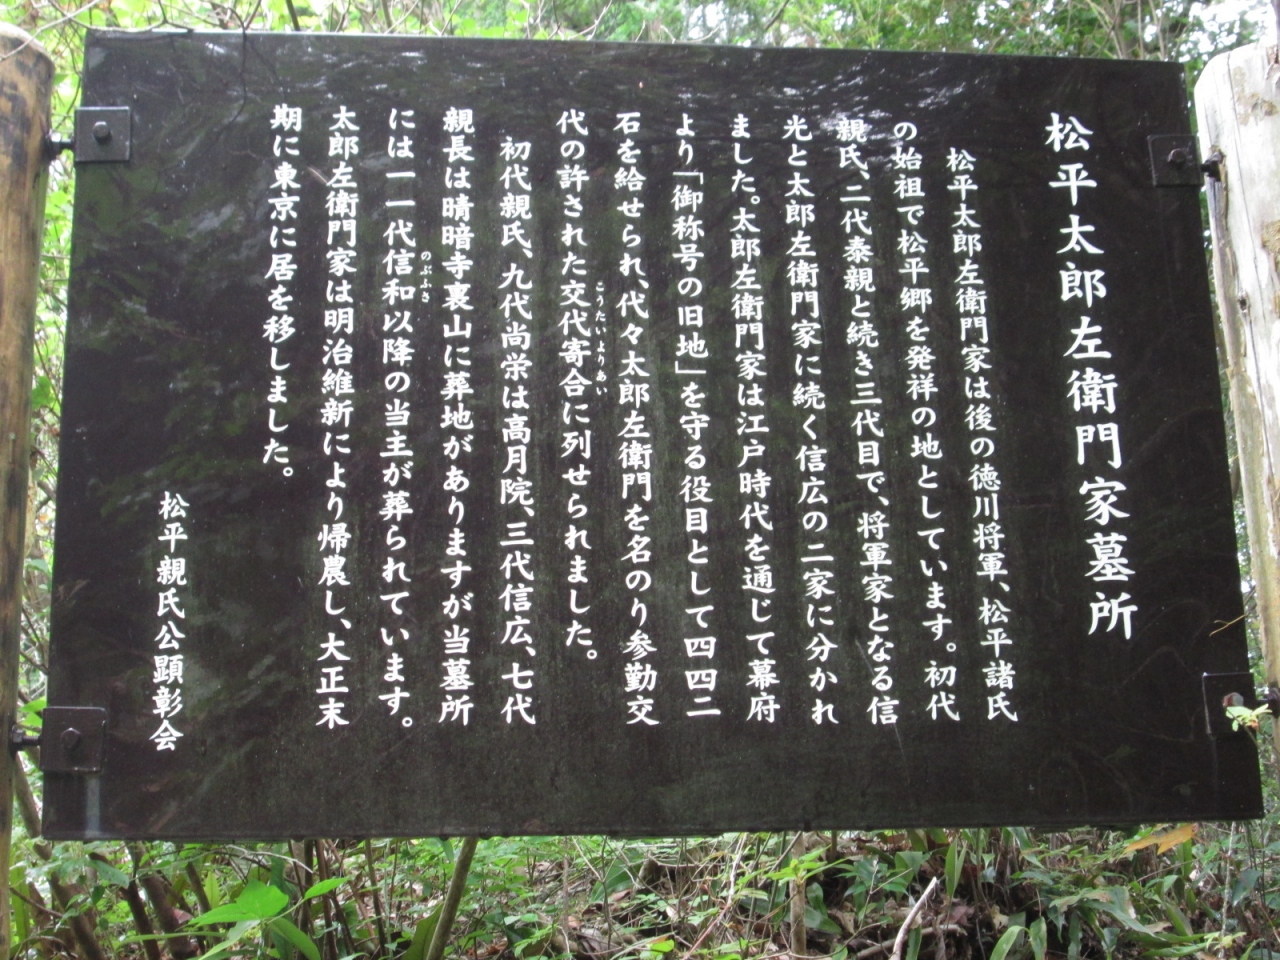 松平太郎左衛門家墓所
松平太郎左衛門家は後の徳川将軍、松平諸氏
の始祖で松平郷を発祥の地としています。初代
親氏、二代泰親と続き三代目で、将軍家となる信
光と太郎左衛門家に続く信広の二家に分かれ
ました。太郎左衛門家は江戸時代を通じて幕府
より「御称号の旧地」を守る役目として四四二
石を給せられ、代々太郎左衛門を名のり参勤交
代の許された交代寄合に列せられました。
こうたいよりあい
初代親氏、九代尚栄は高月院、三代信広、七代
親長は晴暗寺裏山に葬地がありますが当墓所
には一一代信和以降の当主が葬られています。
のぶふさ
太郎左衛門家は明治維新により帰農し、大正末
期に東京に居を移しました。
松平親氏公顕彰会